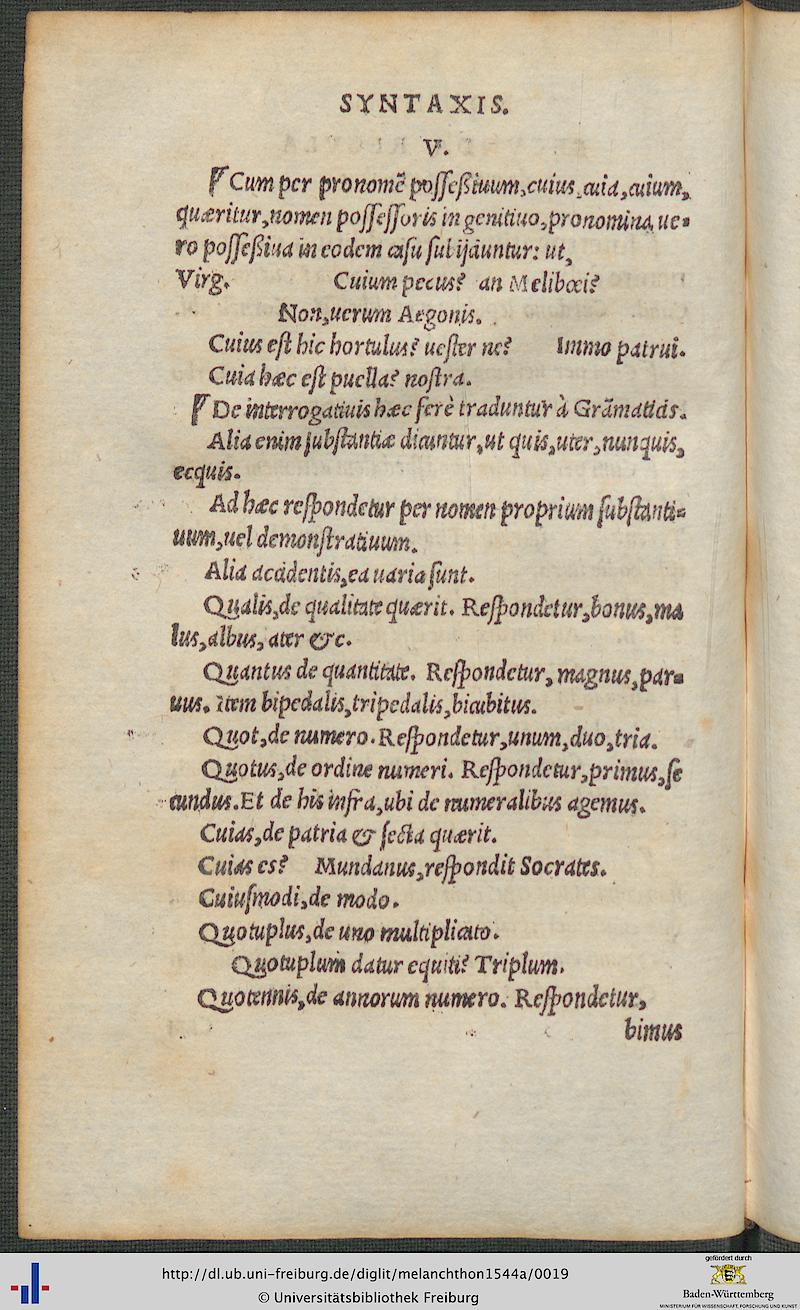 SYNTAXIS.
V.
¶ Cum per pronomē possessiuum, cuius, cuia, cuium,
quæritur, nomen possessoris in genitiuo, pronomina ue-
ro possessiua in eodem casu subijciuntur: ut,
Virg. Cuium pecus? an Melibœi?
Non, uerum Aegonis.
Cuius est hic hortulus? uester ne? Immo patrui.
Cuia hæc est puella? nostra.
¶ De interrogatiuis hæc ferè traduntur à Grāmaticis.
Alia enim substantiæ dicuntur, ut quis, uter, nunquis,
ecquis.
Ad hæc respondetur per nomen proprium substanti-
uum, uel demonstratiuum.
Alia accidentis, ea uaria sunt.
Qualis, de qualitate quærit. Respondetur, bonus, ma
lus, albus, ater &c.
Quantus de quantitate. Respondetur, magnus, par-
uus. Item bipedalis, tripedalis, bicubitus.
Quot, de numero. Respondetur, unum, duo, tria.
Quotus, de ordine numeri. Respondetur, primus, se
cundus. Et de his infra, ubi de numeralibus agemus.
Cuias, de patria & secta quærit.
Cuias es? Mundanus, respondit Socrates.
Cuiusmodi, de modo.
Quotuplus, de uno multiplicato.
Quotuplum datur equiti? Triplum.
Quotennis, de annorum numero. Respondetur,
bimus
http://dl.ub.uni-freiburg.de/diglit/melanchthon1544a/0019
© Universitätsbibliothek Freiburg
gefördert durch
Baden-Württemberg
MINISTERIUM FÜR WISSENSCHAFT, FORSCHUNG UND KUNST